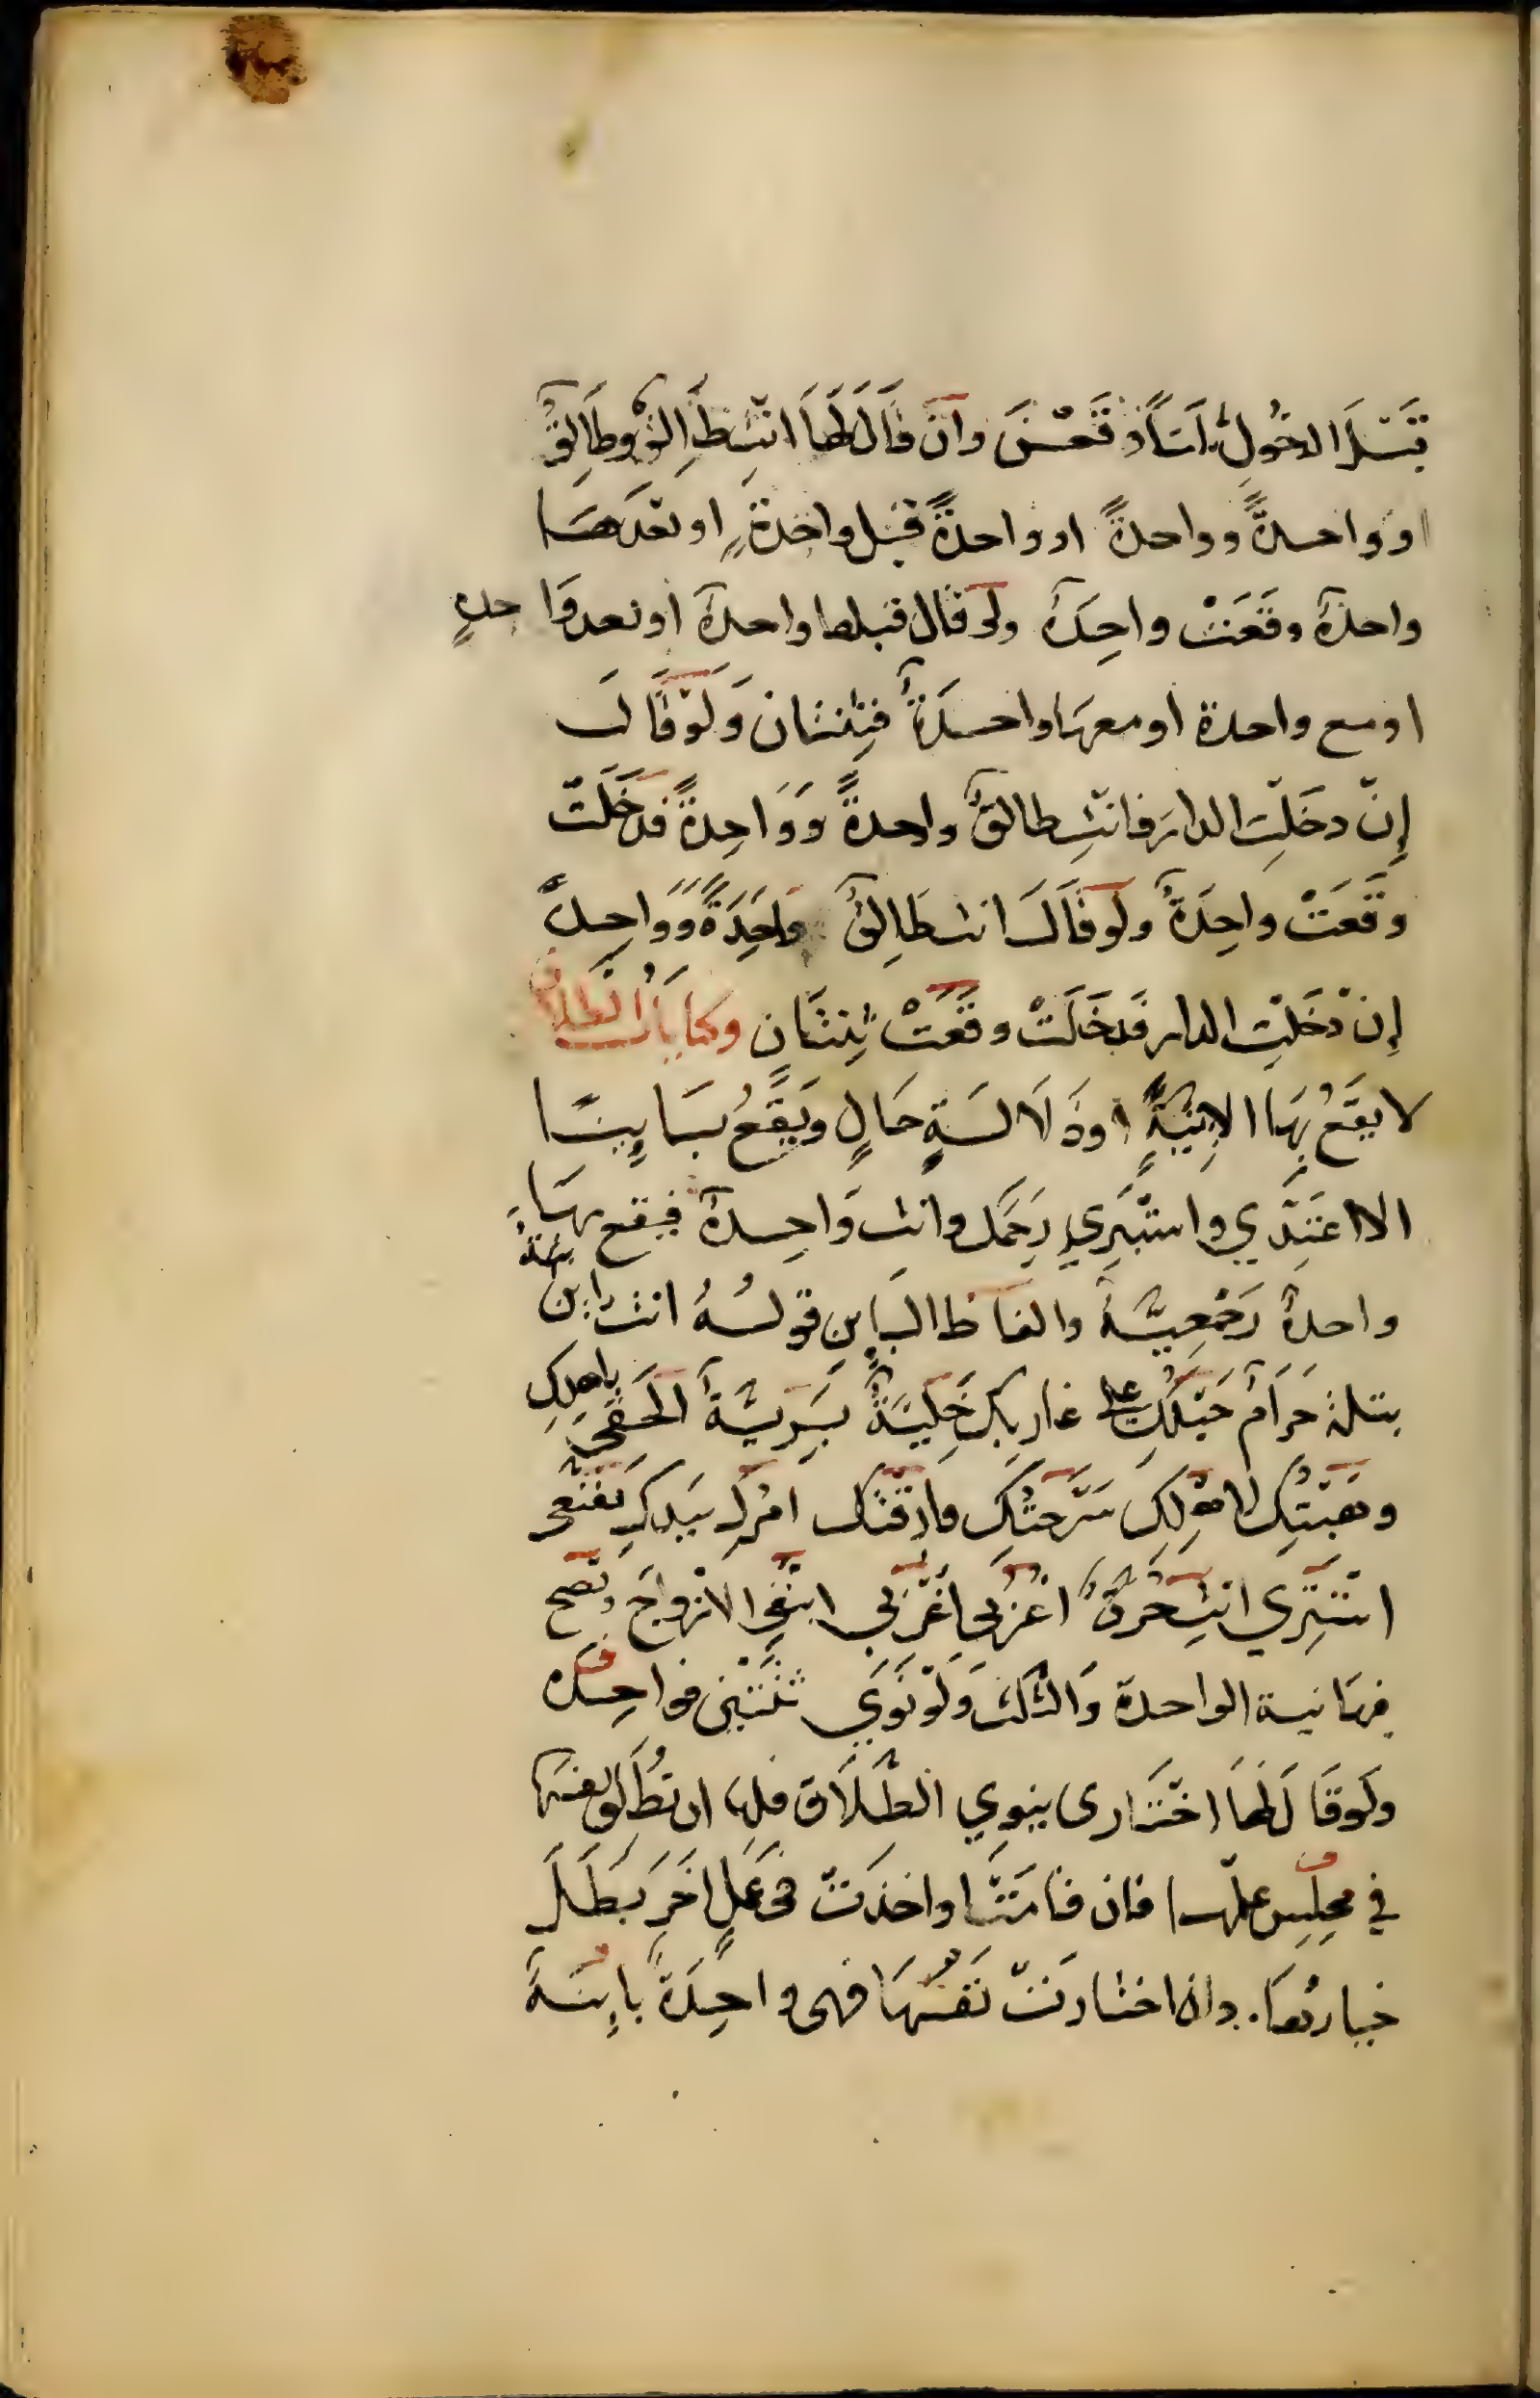 قَبْلَ الدخُولِ ثَلَاثًا وقَعْنَ وان قَالَ لَهَا انتِ طَالِقٌ وطَالِقٌ
او واحدةً وواحدةً او واحدةً قبْل واحدةٍ او بعْدَهَا
واحدةٌ وقَعَتْ واحِدَةٌ ولو قال قبلها واحدةٌ او بعد واحدةٍ
او مع واحدة او معهَا واحدَةٌ فثِنتان وَلَوْ قَالَ
إِنْ دخَلْتِ الدارَ فانتِ طالقٌ واحدةً وَوَاحِدةً فدَخَلَتْ
وقَعَتْ واحِدَةٌ ولو قَالَ انت طَالِقٌ وَاحِدَةً وَوَاحِدةً
إِنْ دَخَلْتِ الدار فدَخَلَتْ وقَعَتْ ثِنتَانِ وكنايَاتُ الطلاق
لا يقَعُ بهَا الا بِنِيَّةٍ او دَلَالَةِ حَالٍ ويَقَعُ بَايِنًا
الا اعتَدِّي واستبْرِي رَحِمَك وانتِ وَاحِدةٌ فيقع بهَا
واحدةٌ رَجْعِيَّةٌ والفاظ البَايِنِ قولُهُ انت بَاين بتةٌ
بتلة حرَامٌ حَبْلُكِ على غاربِكِ خَلِيَّةٌ بَرِيَّةٌ الحَقِي باهلِكِ
وهَبْتُكِ لاهْلِكِ سَرَّحْتُكِ فارَقْتُكِ امْرُكِ بيَدِكِ تَقَنَّعِي
استَتِرِي انتِ حُرَّةٌ اغْرُبِي اعْزُبِي ابتَغِي الازواجَ وتصح
فيهَا نية الواحدة وَالثلث وَلَوْ نَوَى ثنْتَيْنِ فواحِدَة
ولَو قَالَ لَهَا اختَارى ينوِي الطَّلَاق فلها ان تُطَلِّقَ نفسَهَا
في مجلِسِ علمها فان قامَتْ او اخذَتْ في عَمَلٍ اخَرَ بَطَلَ
خيارُهَا. وان اختارَتْ نَفْسَهَا فهى واحِدَةٌ بايِنَةٌ